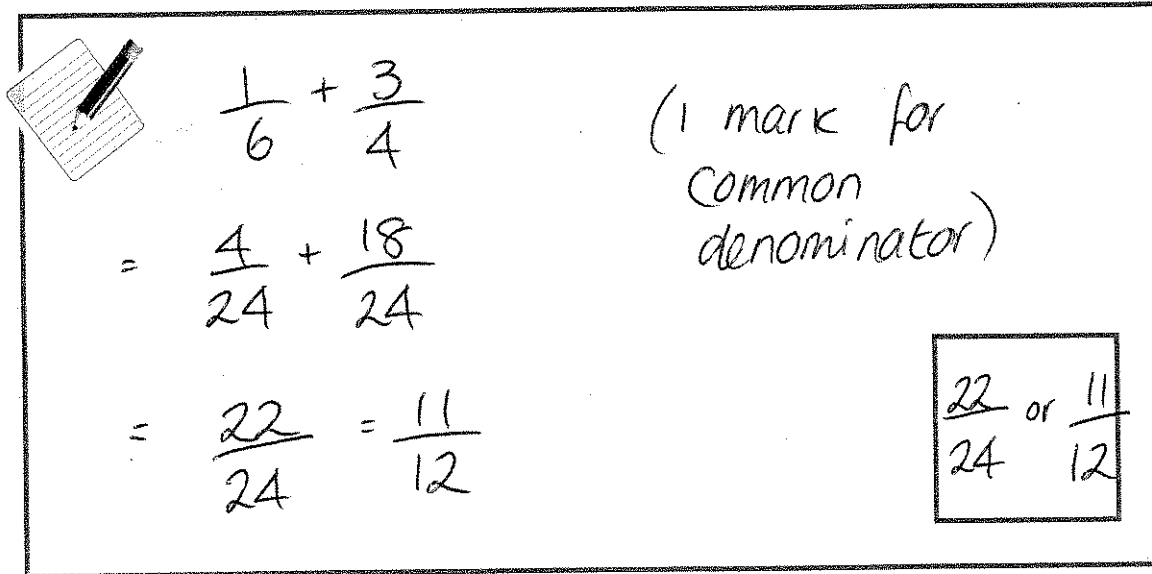 1/6 + 3/4
(1 mark for
common
denominator)
= 4/24 + 18/24
= 22/24 = 11/12
22/24 or 11/12